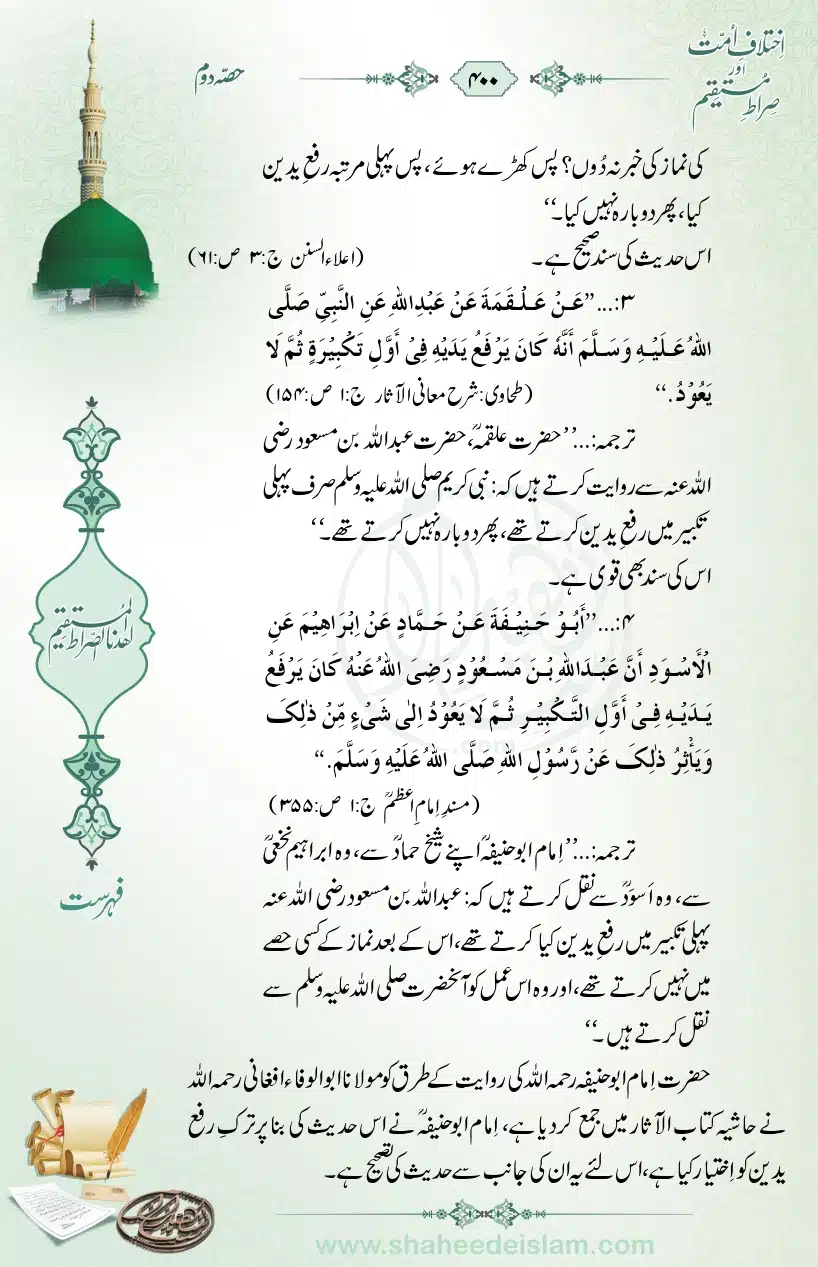 اِختلافِ اُمّت
اور
صِراطِ مُستقیم
۴۰۰
حصّہ دوم
کی نماز کی خبر نہ دُوں؟ پس کھڑے ہوئے، پس پہلی مرتبہ رفعِ یدین
کیا، پھر دوبارہ نہیں کیا۔‘‘
اس حدیث کی سند صحیح ہے۔ (اعلاء السنن ج:۳ ص:۶۱)
۳:…’’عَنْ عَلْقَمَةَ عَنْ عَبْدِاللهِ عَنِ النَّبِيِّ صَلَّى
اللهُ عَلَيْهِ وَسَلَّمَ أَنَّهُ كَانَ يَرْفَعُ يَدَيْهِ فِيْ أَوَّلِ تَكْبِيْرَةٍ ثُمَّ لَا
يَعُوْدُ.‘‘ (طحاوی: شرح معانی الآثار ج:۱ ص:۱۵۴)
ترجمہ:…’’حضرت علقمہؒ، حضرت عبداللہ بن مسعود رضی
اللہ عنہ سے روایت کرتے ہیں کہ: نبی کریم صلی اللہ علیہ وسلم صرف پہلی
تکبیر میں رفعِ یدین کرتے تھے، پھر دوبارہ نہیں کرتے تھے۔‘‘
اس کی سند بھی قوی ہے۔
۴:…’’أَبُوْ حَنِيْفَةَ عَنْ حَمَّادٍ عَنْ اِبْرَاهِيْمَ عَنِ
الْاَسْوَدِ أَنَّ عَبْدَاللهِ بْنَ مَسْعُوْدٍ رَضِيَ اللهُ عَنْهُ كَانَ يَرْفَعُ
يَدَيْهِ فِيْ أَوَّلِ التَّكْبِيْرِ ثُمَّ لَا يَعُوْدُ اِلٰى شَيْءٍ مِّنْ ذٰلِكَ
وَيَأْثِرُ ذٰلِكَ عَنْ رَّسُوْلِ اللهِ صَلَّى اللهُ عَلَيْهِ وَسَلَّمَ.‘‘
(مسندِ اِمامِ اعظمؒ ج:۱ ص:۳۵۵)
ترجمہ:…’’اِمام ابوحنیفہؒ اپنے شیخ حمادؒ سے، وہ ابراہیم نخعیؒ
سے، وہ اَسودؒ سے نقل کرتے ہیں کہ: عبداللہ بن مسعود رضی اللہ عنہ
پہلی تکبیر میں رفعِ یدین کیا کرتے تھے، اس کے بعد نماز کے کسی حصے
میں نہیں کرتے تھے، اور وہ اس عمل کو آنحضرت صلی اللہ علیہ وسلم سے
نقل کرتے ہیں۔‘‘
حضرت اِمام ابوحنیفہ رحمہ اللہ کی روایت کے طرق کو مولانا ابوالوفاء افغانی رحمہ اللہ
نے حاشیہ کتاب الآثار میں جمع کردیا ہے، اِمام ابوحنیفہؒ نے اس حدیث کی بنا پر ترکِ رفع
یدین کو اِختیار کیا ہے، اس لئے یہ ان کی جانب سے حدیث کی تصحیح ہے۔
اهدنا الصّراط المستقيم
فہرست
www.shaheedeislam.com